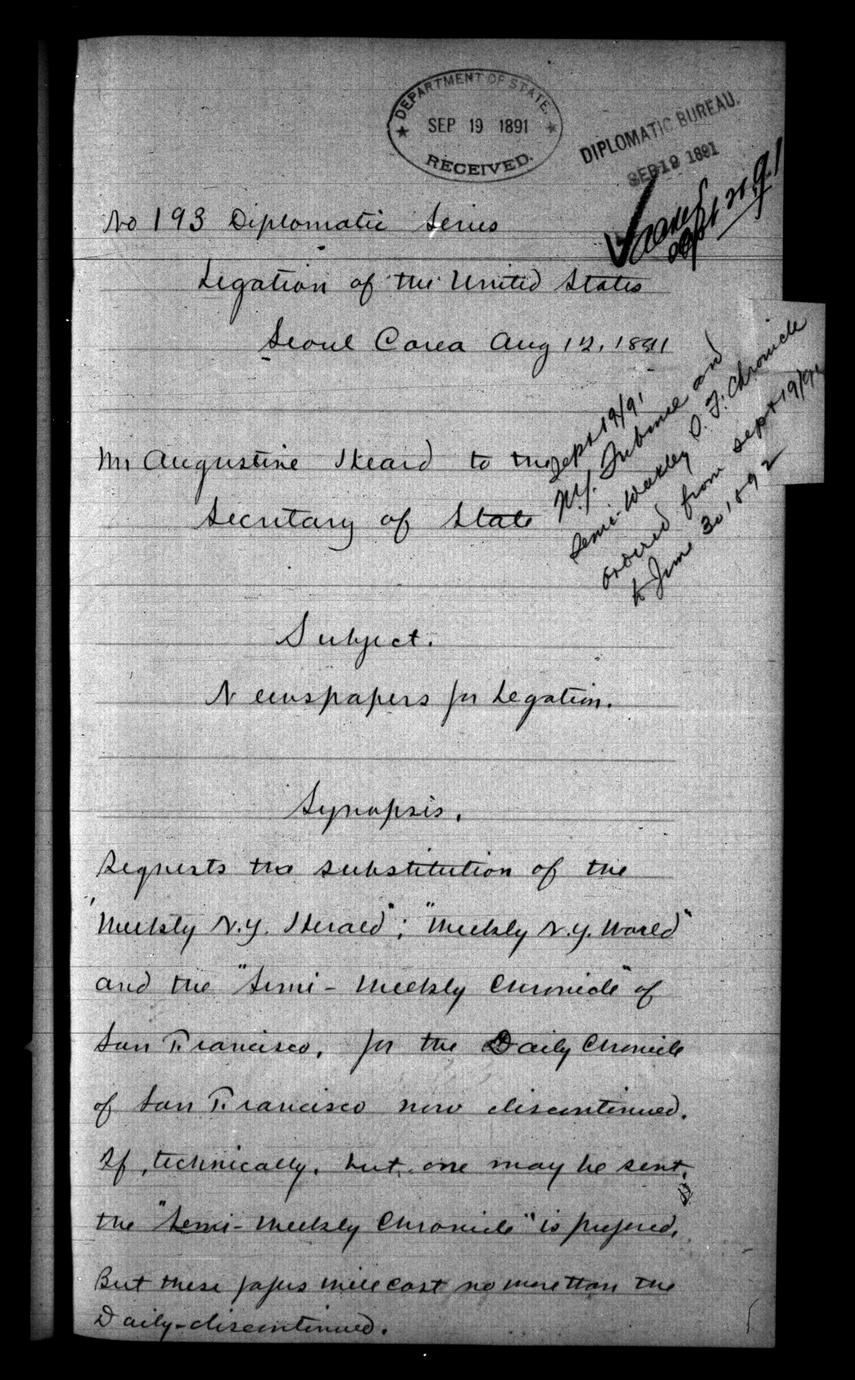 DEPARTMENT OF STATE.
SEP 19 1891
RECEIVED.
DIPLOMATIC BUREAU.
SEP 19 1891
No 193 Diplomatic Series
Legation of the United States
Seoul Corea Aug 12, 1891
Sept 19/91
N.Y. Tribune and
Semi-Weekly S.F. Chronicle
ordered from Sept 19/91
to June 30 1892
Mr Augustine Heard to the
Secretary of State
Subject.
Newspapers for Legation.
Synopsis.
Requests the substitution of the
"Weekly N.Y. Herald"; "Weekly N.Y. World"
and the "Semi-Weekly Chronicle" of
San Francisco, for the Daily Chronicle
of San Francisco now discontinued.
If, technically, but one may be sent,
the "Semi-Weekly Chronicle" is prefered.
But these papers will cost no more than the
Daily-discontinued.